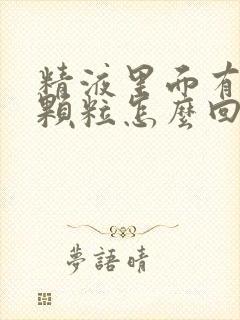 精液里面有
顆粒怎麼回
夢語晴